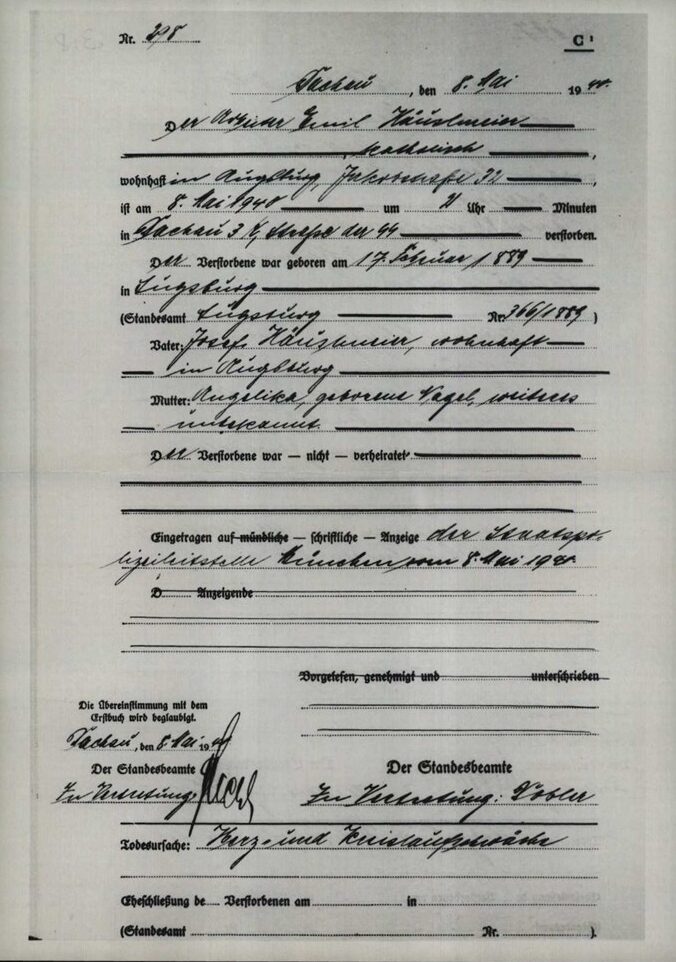 Nr. 298
C¹
Dachau, den 8. Mai 1940.
Der Arbeiter Emil Häuslmeier
, katholisch,
wohnhaft in Augsburg, Jakobstraße 32,
ist am 8. Mai 1940 um 21 Uhr Minuten
in Dachau 3 K, Straße der SS verstorben.
Der Verstorbene war geboren am 17. Februar 1889
in Augsburg
(Standesamt Augsburg Nr. 366/1889)
Vater: Josef Häuslmeier, wohnhaft
in Augsburg
Mutter: Angelika, geborene Vogel, weiteres
unbekannt.
Der Verstorbene war – nicht – verheiratet
Eingetragen auf mündliche – schriftliche – Anzeige der Staatspo-
lizeileitstelle München vom 8. Mai 1940.
D Anzeigende
Vorgelesen, genehmigt und unterschrieben
Die Übereinstimmung mit dem
Erstbuch wird beglaubigt.
Dachau, den 8. Mai 1940
Der Standesbeamte
In Vertretung:
Der Standesbeamte
In Vertretung: Dobler
Todesursache: Herz- und Kreislaufschwäche
Eheschließung de Verstorbenen am in
(Standesamt Nr. ).